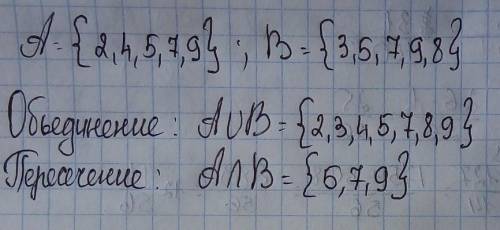 A = {2,4,5,7,9} ; B = {3,5,7,9,8}
Обьединение : A∪B = {2,3,4,5,7,8,9}
Пересечение : A∩B = {5,7,9}